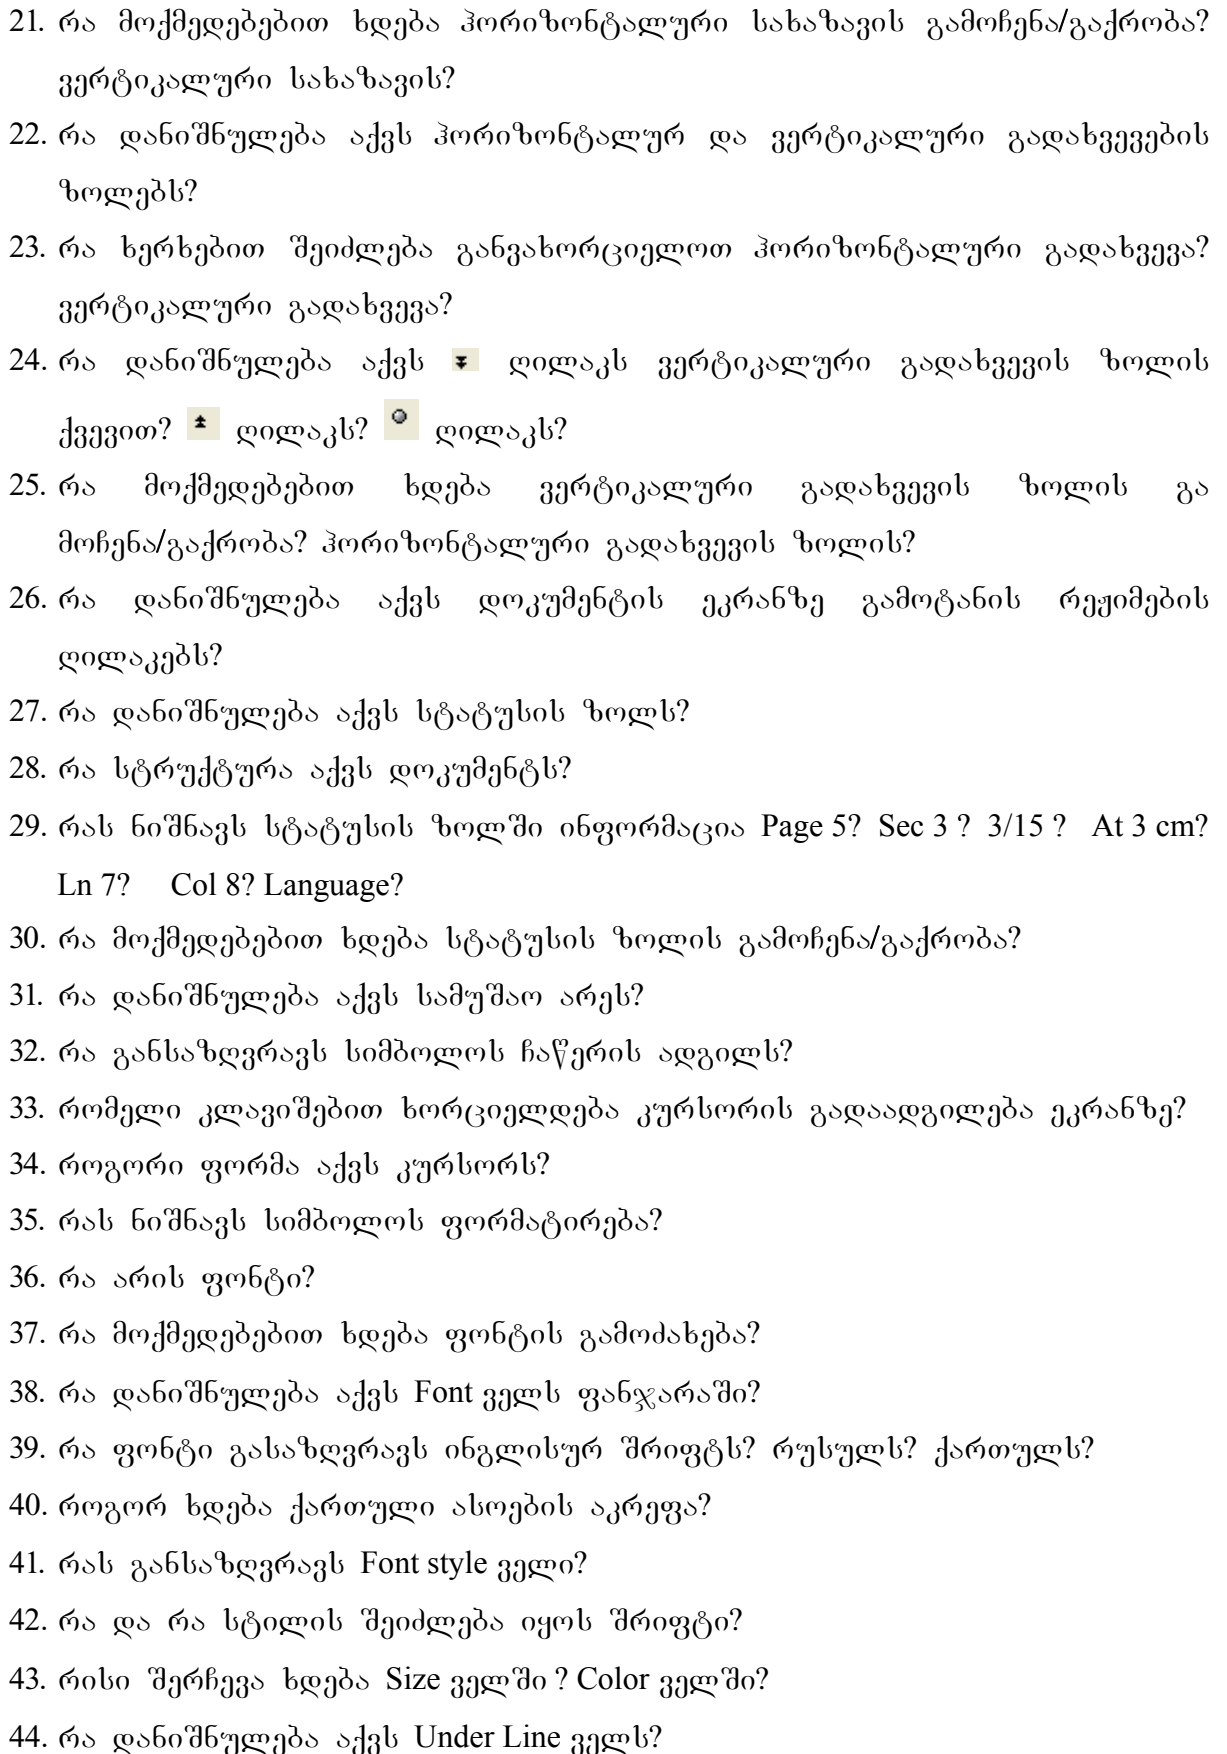 21. რა მოქმედებებით ხდება ჰორიზონტალური სახაზავის გამოჩენა/გაქრობა?
ვერტიკალური სახაზავის?
22. რა დანიშნულება აქვს ჰორიზონტალურ და ვერტიკალური გადახვევების
ზოლებს?
23. რა ხერხებით შეიძლება განვახორციელოთ ჰორიზონტალური გადახვევა?
ვერტიკალური გადახვევა?
24. რა დანიშნულება აქვს ღილაკს ვერტიკალური გადახვევის ზოლის
ქვევით? ღილაკს? ღილაკს?
25. რა მოქმედებებით ხდება ვერტიკალური გადახვევის ზოლის გა
მოჩენა/გაქრობა? ჰორიზონტალური გადახვევის ზოლის?
26. რა დანიშნულება აქვს დოკუმენტის ეკრანზე გამოტანის რეჟიმების
ღილაკებს?
27. რა დანიშნულება აქვს სტატუსის ზოლს?
28. რა სტრუქტურა აქვს დოკუმენტს?
29. რას ნიშნავს სტატუსის ზოლში ინფორმაცია Page 5? Sec 3 ? 3/15 ? At 3 cm?
Ln 7? Col 8? Language?
30. რა მოქმედებებით ხდება სტატუსის ზოლის გამოჩენა/გაქრობა?
31. რა დანიშნულება აქვს სამუშაო არეს?
32. რა განსაზღვრავს სიმბოლოს ჩაწერის ადგილს?
33. რომელი კლავიშებით ხორციელდება კურსორის გადაადგილება ეკრანზე?
34. როგორი ფორმა აქვს კურსორს?
35. რას ნიშნავს სიმბოლოს ფორმატირება?
36. რა არის ფონტი?
37. რა მოქმედებებით ხდება ფონტის გამოძახება?
38. რა დანიშნულება აქვს Font ველს ფანჯარაში?
39. რა ფონტი გასაზღვრავს ინგლისურ შრიფტს? რუსულს? ქართულს?
40. როგორ ხდება ქართული ასოების აკრეფა?
41. რას განსაზღვრავს Font style ველი?
42. რა და რა სტილის შეიძლება იყოს შრიფტი?
43. რისი შერჩევა ხდება Size ველში ? Color ველში?
44. რა დანიშნულება აქვს Under Line ველს?